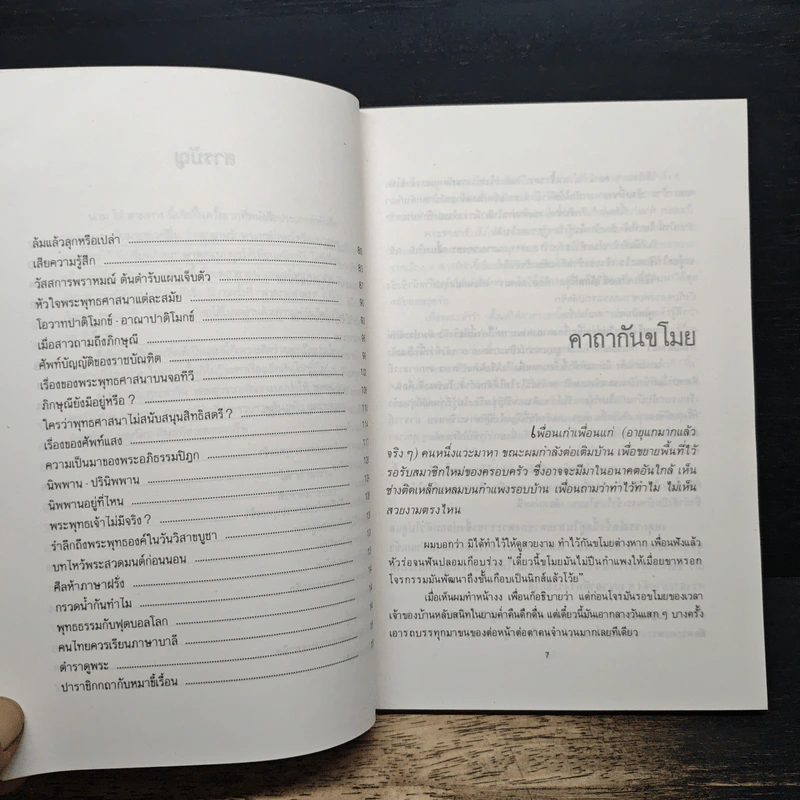 ล้มแล้วลุกหรือเปล่า
เสียความรู้สึก
วัสสการพราหมณ์ ต้นตำรับแผนเจ็บตัว
หัวใจพระพุทธศาสนาแต่ละสมัย
โอวาทปาติโมกข์ - อาณาปาติโมกข์
เมื่อสาวถามถึงภิกษุณี
ศัพท์บัญญัติของราชบัณฑิต
เรื่องของพระพุทธศาสนาบนจอทีวี
ภิกษุณียังมีอยู่หรือ ?
ใครว่าพุทธศาสนาไม่สนับสนุนสิทธิสตรี ?
เรื่องของศัพท์แสง
ความเป็นมาของพระอภิธรรมปิฎก
นิพพาน - ปรินิพพาน
นิพพานอยู่ที่ไหน
พระพุทธเจ้าไม่มีจริง ?
รำลึกถึงพระพุทธองค์ในวันวิสาขบูชา
บทไหว้พระสวดมนต์ก่อนนอน
ศีลห้าภาษาฝรั่ง
กรวดน้ำกันทำไม
พุทธธรรมกับฟุตบอลโลก
คนไทยควรเรียนภาษาบาลี
ตำราดูพระ
ปาราชิกกถากับหมาขี้เรื้อน
คาถากันขโมย
เพื่อนเก่าเพื่อนแก่ (อายุแกมากแล้ว
จริง ๆ) คนหนึ่งแวะมาหา ขณะผมกำลังต่อเติมบ้าน เพื่อขยายพื้นที่ไว้
รอรับสมาชิกใหม่ของครอบครัว ซึ่งอาจจะมีมาในอนาคตอันใกล้ เห็น
ช่างติดเหล็กแหลมบนกำแพงรอบบ้าน เพื่อนถามว่าทำไว้ทำไม ไม่เห็น
สวยงามตรงไหน
ผมบอกว่า มิได้ทำไว้ให้ดูสวยงาม ทำไว้กันขโมยต่างหาก เพื่อนฟังแล้ว
หัวร่อจนฟันปลอมเกือบร่วง "เดี๋ยวนี้ขโมยมันไม่ปีนกำแพงให้เมื่อยขาหรอก
โจรกรรมมันพัฒนาถึงขั้นเกือบเป็นนิกส์แล้วโว้ย"
เมื่อเห็นผมทำหน้างง เพื่อนก็อธิบายว่า แต่ก่อนโจรมันรอขโมยของเวลา
เจ้าของบ้านหลับสนิทในยามค่ำคืนดึกดื่น แต่เดี๋ยวนี้มันเอากลางวันแสก ๆ บางครั้ง
เอารถบรรทุกมาขนของต่อหน้าต่อตาคนจำนวนมากเลยทีเดียว
7